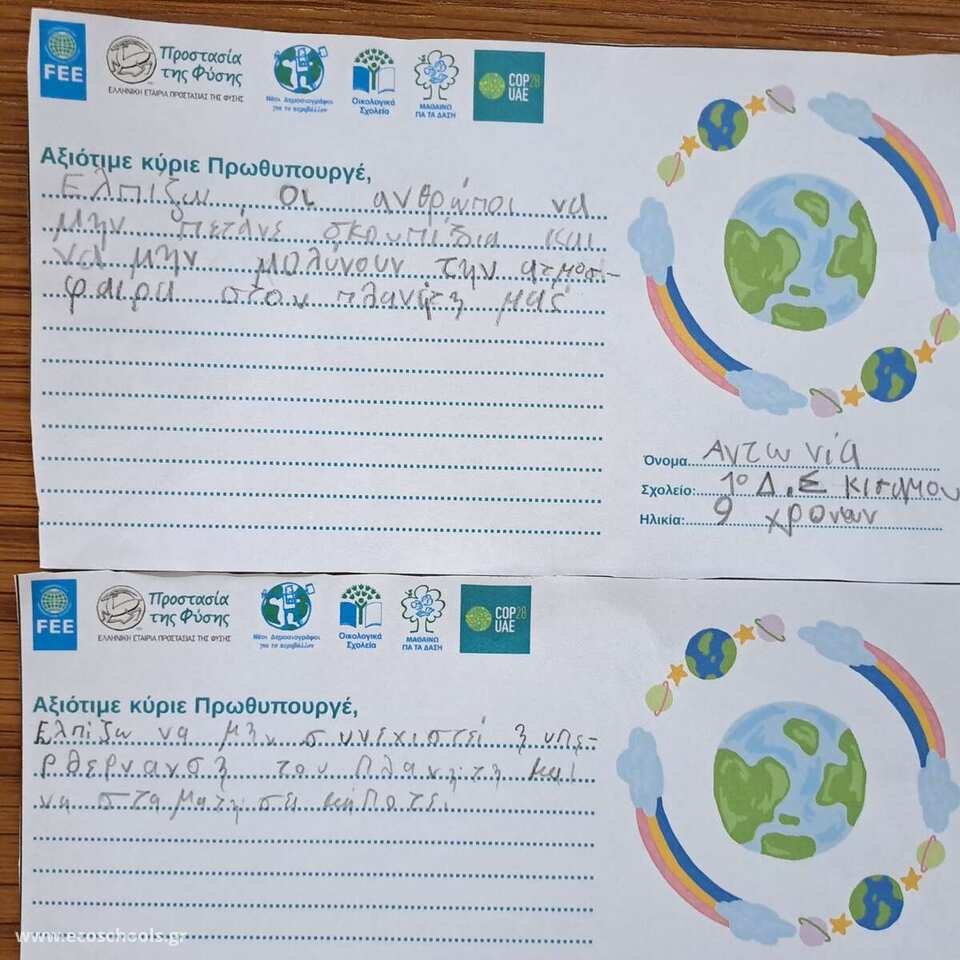 FEE
Προστασία
της Φύσης
ΕΛΛΗΝΙΚΗ ΕΤΑΙΡΙΑ ΠΡΟΣΤΑΣΙΑΣ ΤΗΣ ΦΥΣΗΣ
Νέοι Δημοσιογράφοι
για το περιβάλλον
Οικολογικά
Σχολεία
ΜΑΘΑΙΝΩ
ΓΙΑ ΤΑ ΔΑΣΗ
COP28
UAE
Αξιότιμε κύριε Πρωθυπουργέ,
Ελπίζω οι ανθρώποι να
μην πετάνε σκουπίδια και
να μην μολύνουν την ατμοσ-
φαιρα στον πλανήτη μας
Όνομα Αντωνία
Σχολείο: 1ο Δ.Σ Κισαμου
Ηλικία: 9 χρονων
FEE
Προστασία
της Φύσης
ΕΛΛΗΝΙΚΗ ΕΤΑΙΡΙΑ ΠΡΟΣΤΑΣΙΑΣ ΤΗΣ ΦΥΣΗΣ
Νέοι Δημοσιογράφοι
για το περιβάλλον
Οικολογικά
Σχολεία
ΜΑΘΑΙΝΩ
ΓΙΑ ΤΑ ΔΑΣΗ
COP28
UAE
Αξιότιμε κύριε Πρωθυπουργέ,
Ελπίζω να μην συνεχιστεί η υπε-
ρθερνανση του πλανήτη και
να σταματήσει κάποτε.
www.ecoschools.gr